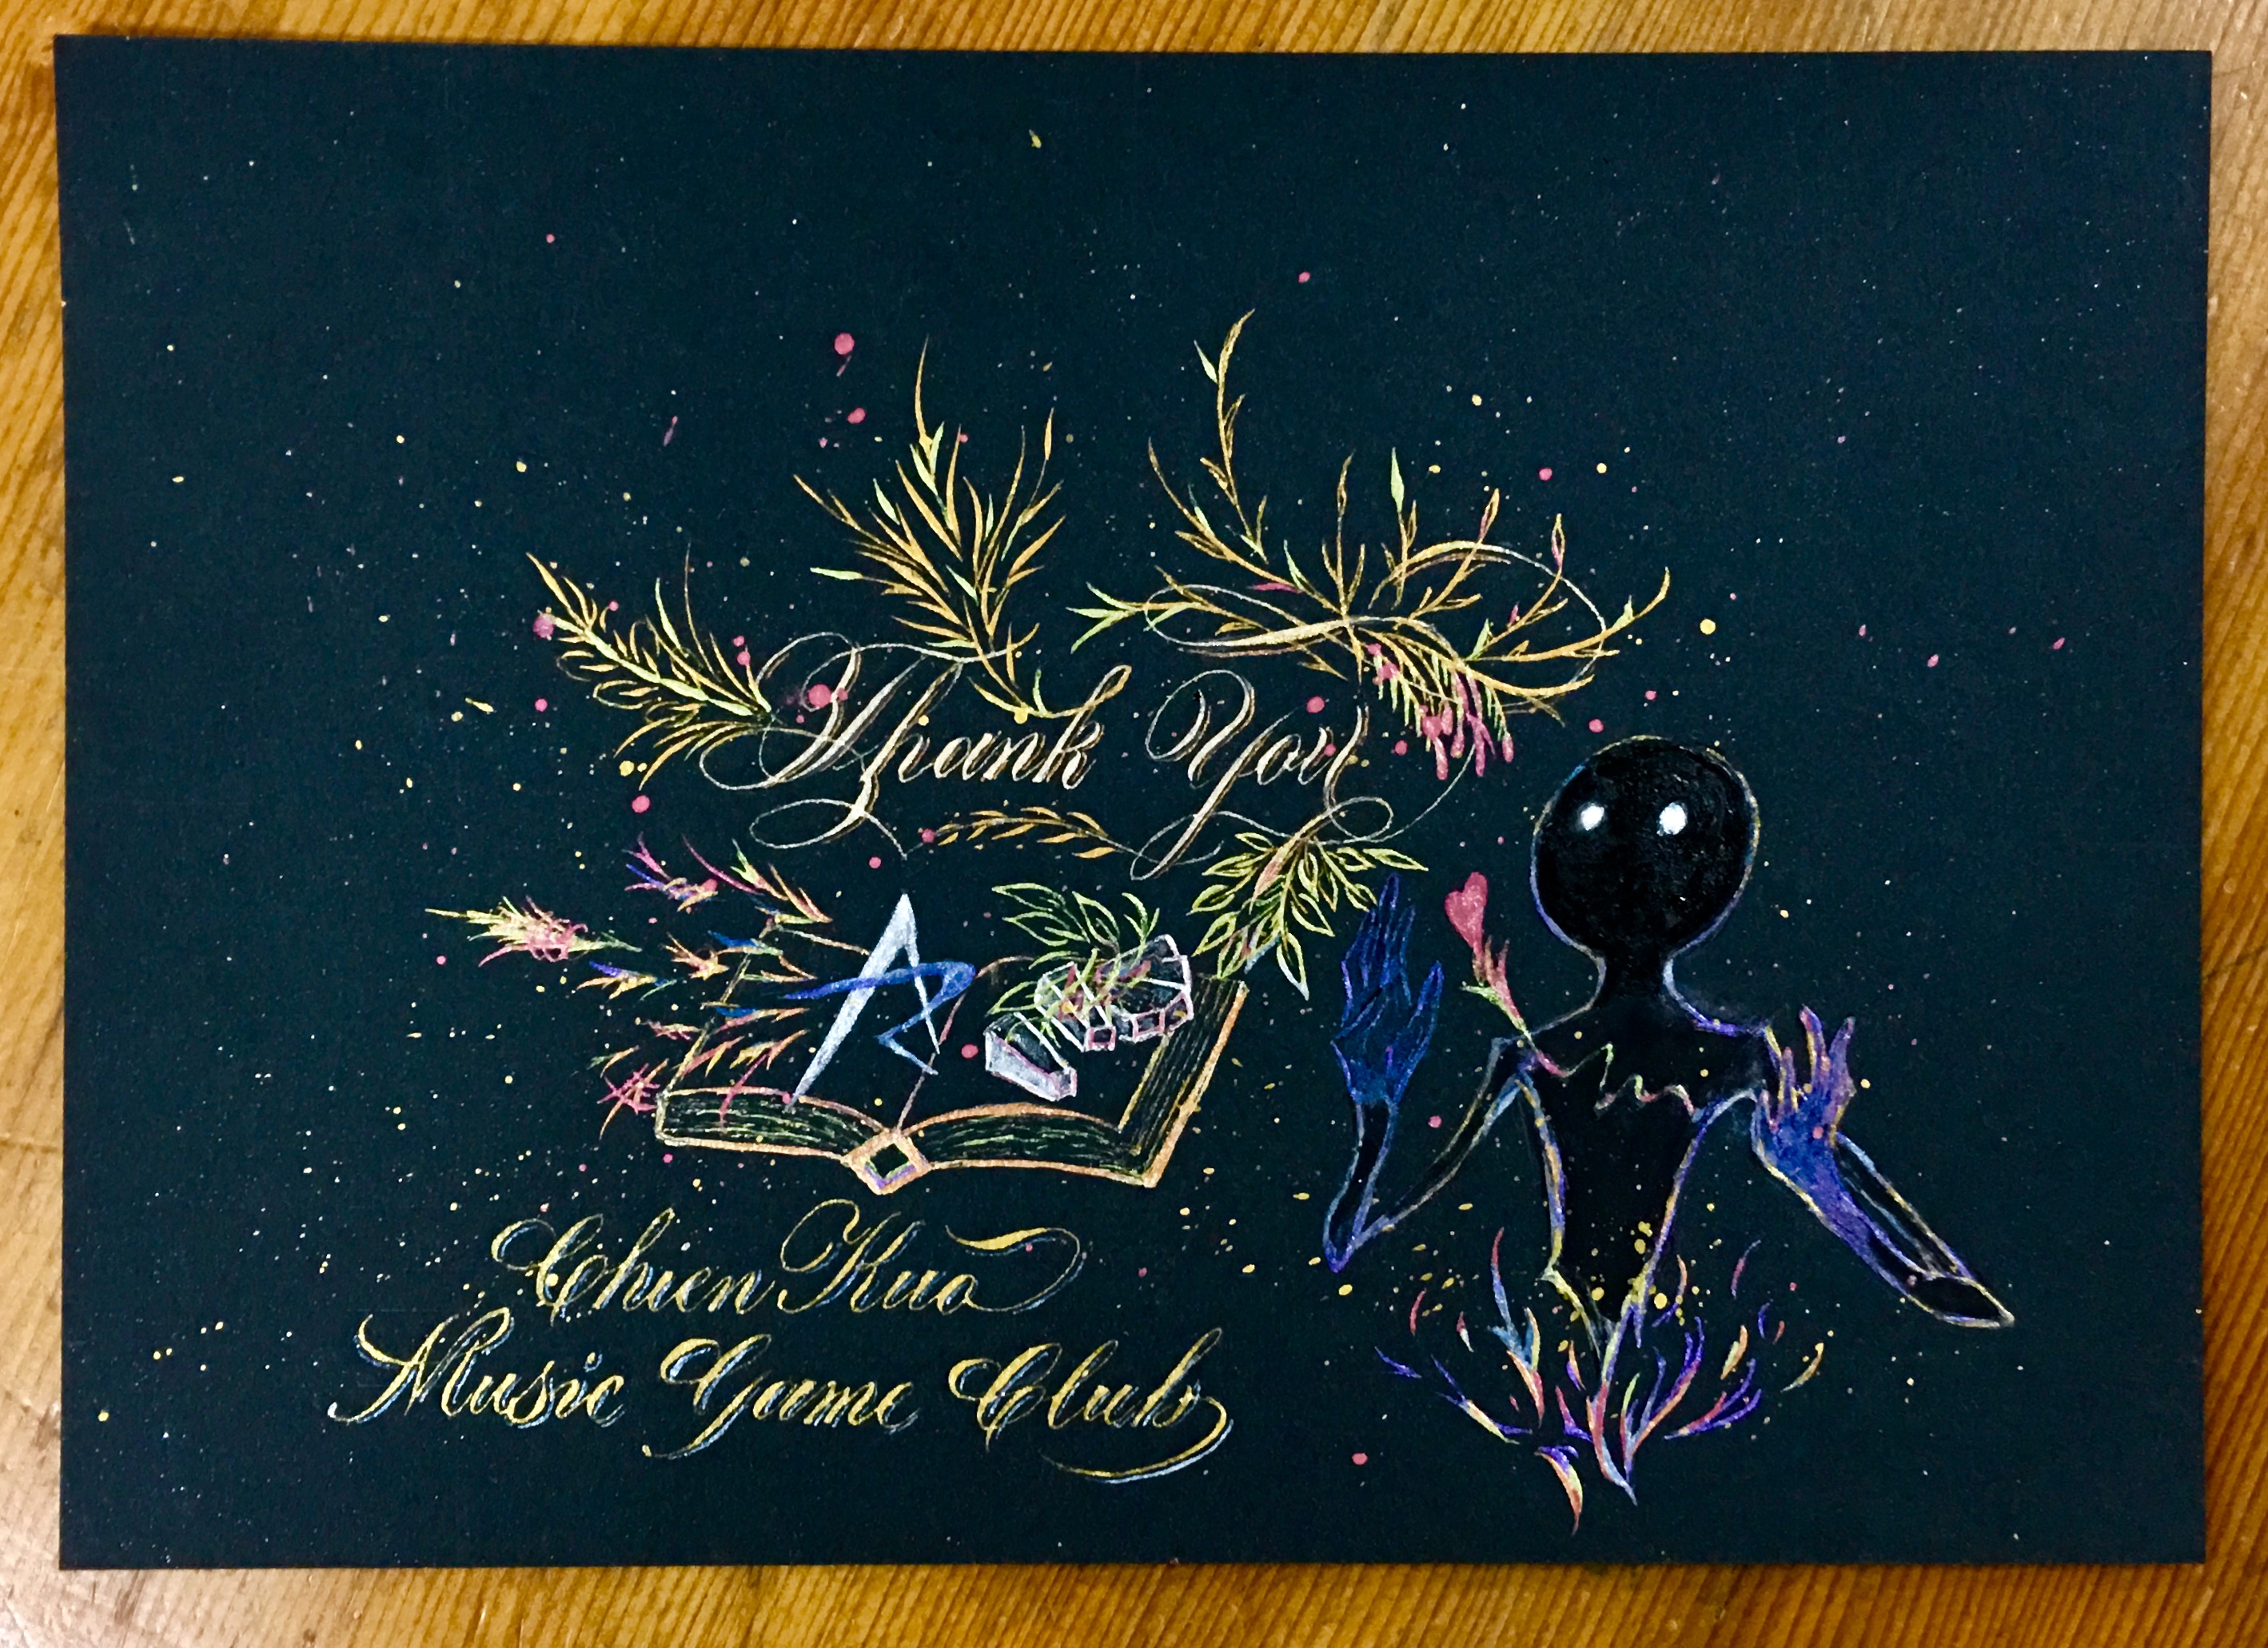 Thank You
Chien Kuo
Music Game Club